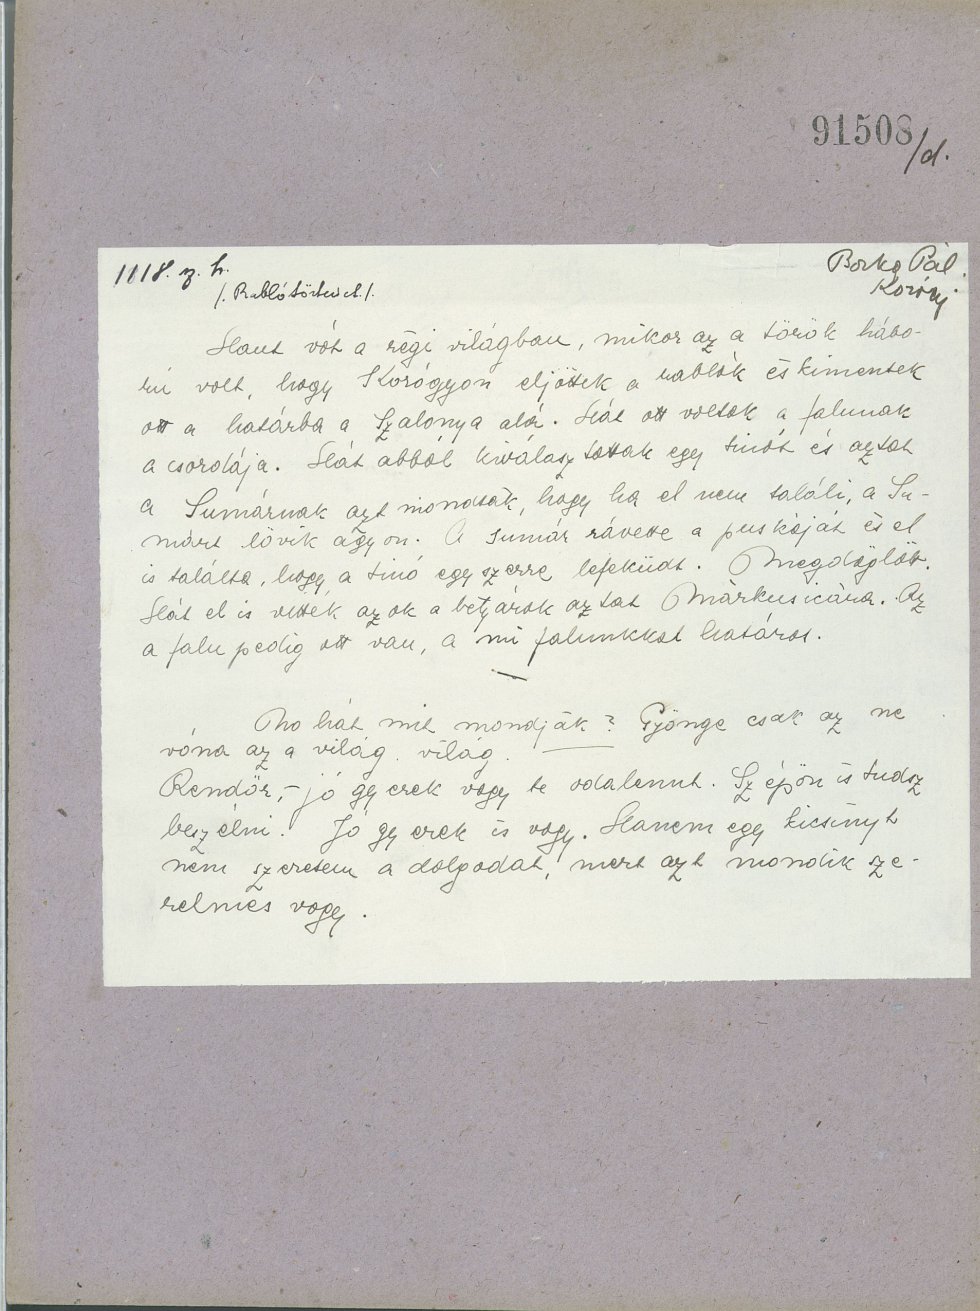 91508/d.
1118. z. h.
/. Rablótörténet./.
Borka Pál
Haut vót a régi világbau, mikor az a török hábo-
rú volt, hogy Korógyon eljöttek a rablók és kimentek
ott a határba a Szalonya alá. Hát ott voltak a falunak
a csordája. Hát abból kiválasztottak egy tinót és aztat
a Sumárnak azt mondták, hogy ha el nem találi, a Su-
márt lövik agyon. A sumár rávette a puskáját és el
is találta, hogy a tinó egyszerre lefeküdt. Megdöglött.
Hát el is vitték azok a betyárok aztat Márkusicára. Az
a falu pedig ott van, a mi falunkkal határos.
No hát mit mondják? Gyönge csak az ne
vóna az a világ. világ.
Rendőr, – jó gyerek vagy te odalennt. Szépön is tudsz
beszélni. Jó gyerek is vagy. Hanem egy kicsinyt
nem szeretem a dolgodat, mert azt mondik sze-
relmes vagy.